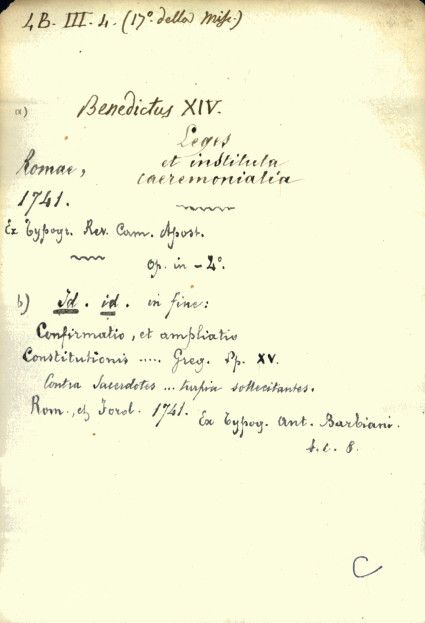 4B. III. 4. (17º della Misc.)
a) Benedictus XIV.
Leges
et instituta
caeremonialia
Romae,
1741.
Ex Typogr. Rev. Cam. Apost.
Op. in - 4º.
b) Id. id. in fine:
Confirmatio, et ampliatio
Constitutionis ..... Greg. Pp. XV.
Contra Sacerdotes ... turpia sollicitantes.
Rom., et Forol. 1741.
Ex Typog. Ant. Barbiani.
f. c. 8.
C